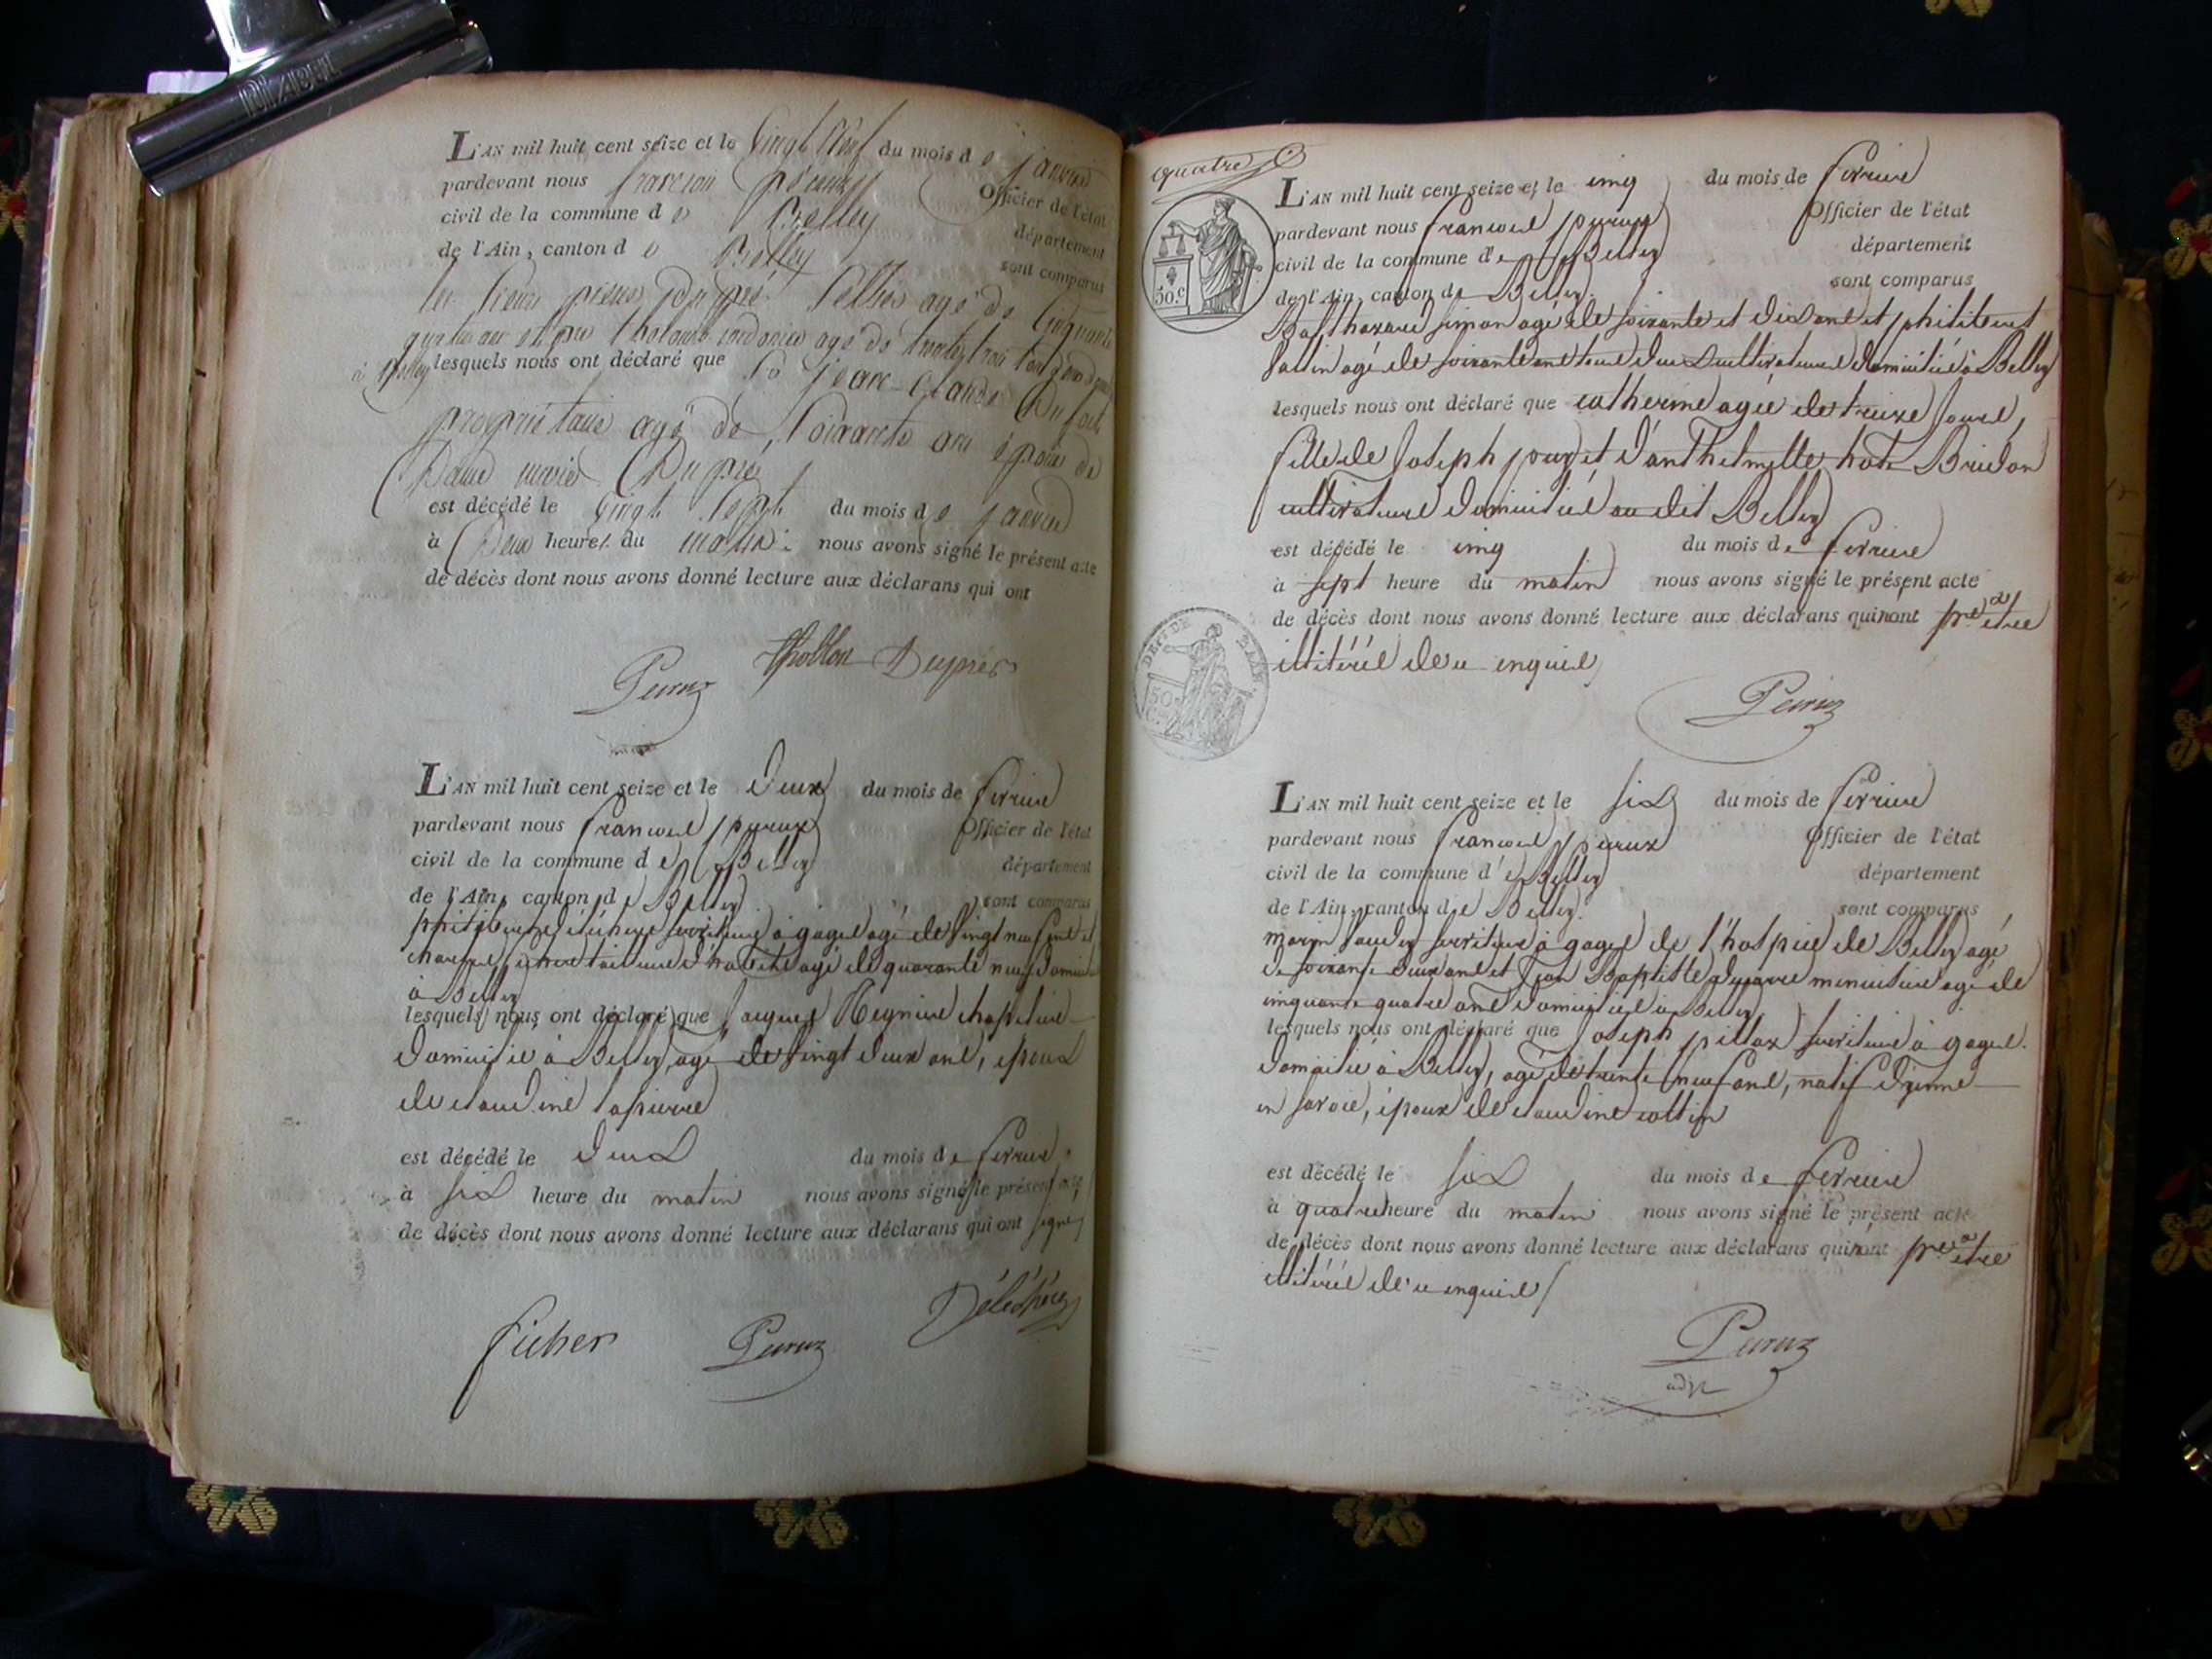 DIABEL
L'AN mil huit cent seize et le Vingt Neuf du mois de janvier
pardevant nous françois peiruz Officier de l'état
civil de la commune de Belley département
de l'Ain, canton de Belley sont comparus
les Sieurs pierre dupré Sellier agé de Cinquante
quatre ans et trente trois
à Belley lesquels nous ont déclaré que Sr jean-Claude
propriétaire agé de Soixante ans époux de
Dame marie Dupré
est décédé le Vingt Sept du mois de janvier
à Deux heures du matin nous avons signé le présent acte
de décès dont nous avons donné lecture aux déclarans qui ont
Peiruz thollon Dupré
L'AN mil huit cent seize et le deux du mois de fevrier
pardevant nous francois peiruz Officier de l'état
civil de la commune de Belley département
de l'Ain, canton de Belley sont comparus
serviteur à gages agé de vingt neuf ans et
tailleur d'habits agé de quarante neuf domicilié
à Belley
lesquels nous ont déclaré que jacques Regnier chapelier
domicilié à Belley, agé de vingt deux ans, epoux
de claudine lapierre
est décédé le deux du mois de fevrier
à six heure du matin nous avons signé le présent acte
de décès dont nous avons donné lecture aux déclarans qui ont signé
ficher Peiruz Déléchère
quatre
50.c
L'AN mil huit cent seize et le cinq du mois de fevrier
pardevant nous francois peiruz Officier de l'état
civil de la commune de Belley département
de l'Ain, canton de Belley sont comparus
Balthazard simon agé de soixante et dix ans et philibert
agé de soixante ans tous deux cultivateurs domiciliés à Belley
lesquels nous ont déclaré que catherine agée de treize jours,
fille de joseph et d'anthelmette Bridon
cultivateurs domiciliés au dit Belley
est décédé le cinq du mois de fevrier
à sept heure du matin nous avons signé le présent acte
de décès dont nous avons donné lecture aux déclarans qui nont pr etre
illitérés de ce enquis
DEPt DE L'AIN
50
Peiruz
L'AN mil huit cent seize et le six du mois de fevrier
pardevant nous francois peiruz Officier de l'état
civil de la commune de Belley département
de l'Ain, canton de Belley sont comparus
marin serviteur à gages de l'hospice de Belley agé
de soixante deux ans et Jean Baptiste menuisier agé de
cinquante quatre ans domiciliés à Belley
lesquels nous ont déclaré que joseph pillax serviteur à gages
domicilié à Belley, agé de trente neuf ans, natif d'yenne
en savoie, époux de claudine collin
est décédé le six du mois de fevrier
à quatre heure du matin nous avons signé le présent acte
de décès dont nous avons donné lecture aux déclarans qui nont pr etre
illitérés de ce enquis
Peiruz
adjt